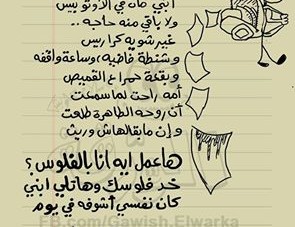 ابني كان في الاوتوبيس
ولا باقي منه حاجه ..
غير شوية كراريس
وشنطة فاضيه وساعة واقفه
وبقعة حمرا ع القميص
أمه راحت لما سمعت
أن روحه الطاهرة طلعت
وإن ما بقالهاش وريث
هاعمل ايه انا بالفلوس ؟
خد فلوسك وهاتلي ابني
كان نفسي أشوفه في يوم
FB.com/Gawish.Elwarka